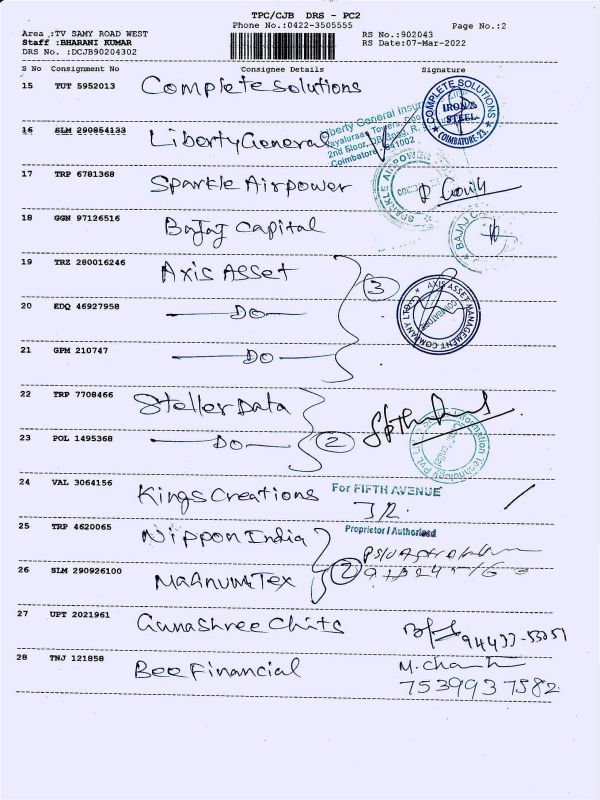 TPC/CJB DRS - PC2
Phone No.:0422-3505555
Page No.:2
Area :TV SAMY ROAD WEST
RS No.:902043
Staff :BHARANI KUMAR
RS Date:07-Mar-2022
DRS No. :DCJB90204302
S No Consignment No Consignee Details Signature
15 TUT 5952013 Complete Solutions
COMPLETE SOLUTIONS IRON & STEEL COIMBATORE-23.
16 SLM 290854133 Liberty General
Liberty General Insur
2nd Floor,
Coimbatore - 641002
17 TRP 6781368 Sparkle Airpower
SPARKLE AIRPOWER
18 GGN 97126516 Bajaj Capital
BAJAJ C
19 TRZ 280016246 Axis Asset
3
AXIS ASSET MANAGEMENT COMPANY LTD COIMBATORE
20 EDQ 46927958 Do
21 GPM 210747 Do
22 TRP 7708466 Steller Data
23 POL 1495368 Do
2
Information Technology Pvt.
24 VAL 3064156 Kings Creations
For FIFTH AVENUE
Proprietor / Authorised
25 TRP 4620065 Nippon India
2
26 SLM 290926100 Magnum Tex
27 UPT 2021961 Gunashree Chits
28 TNJ 121858 Bee Financial
7539937582